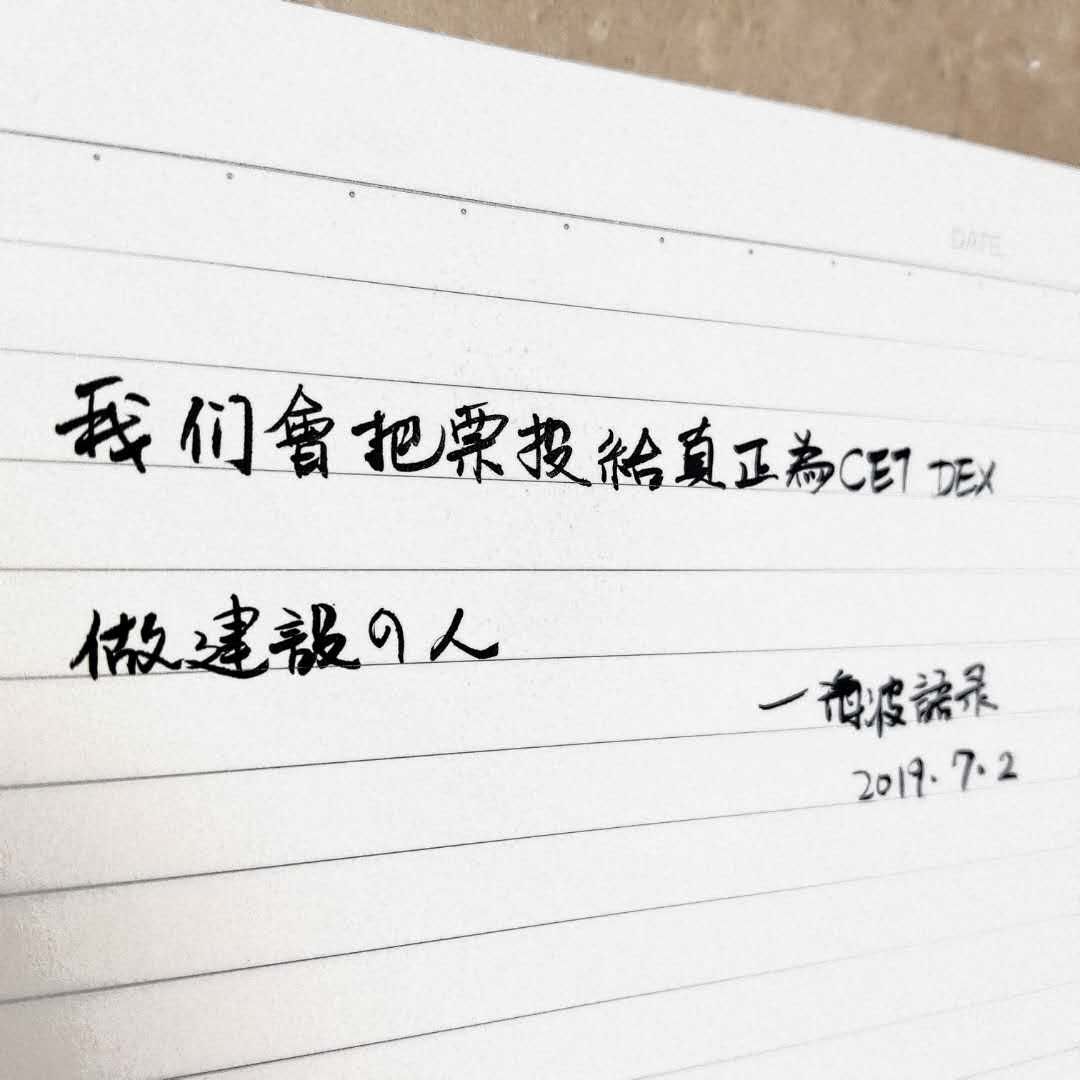 DATE
我们會把票投給真正為CET DEX
做建設の人
一海波語录
2019.7.2